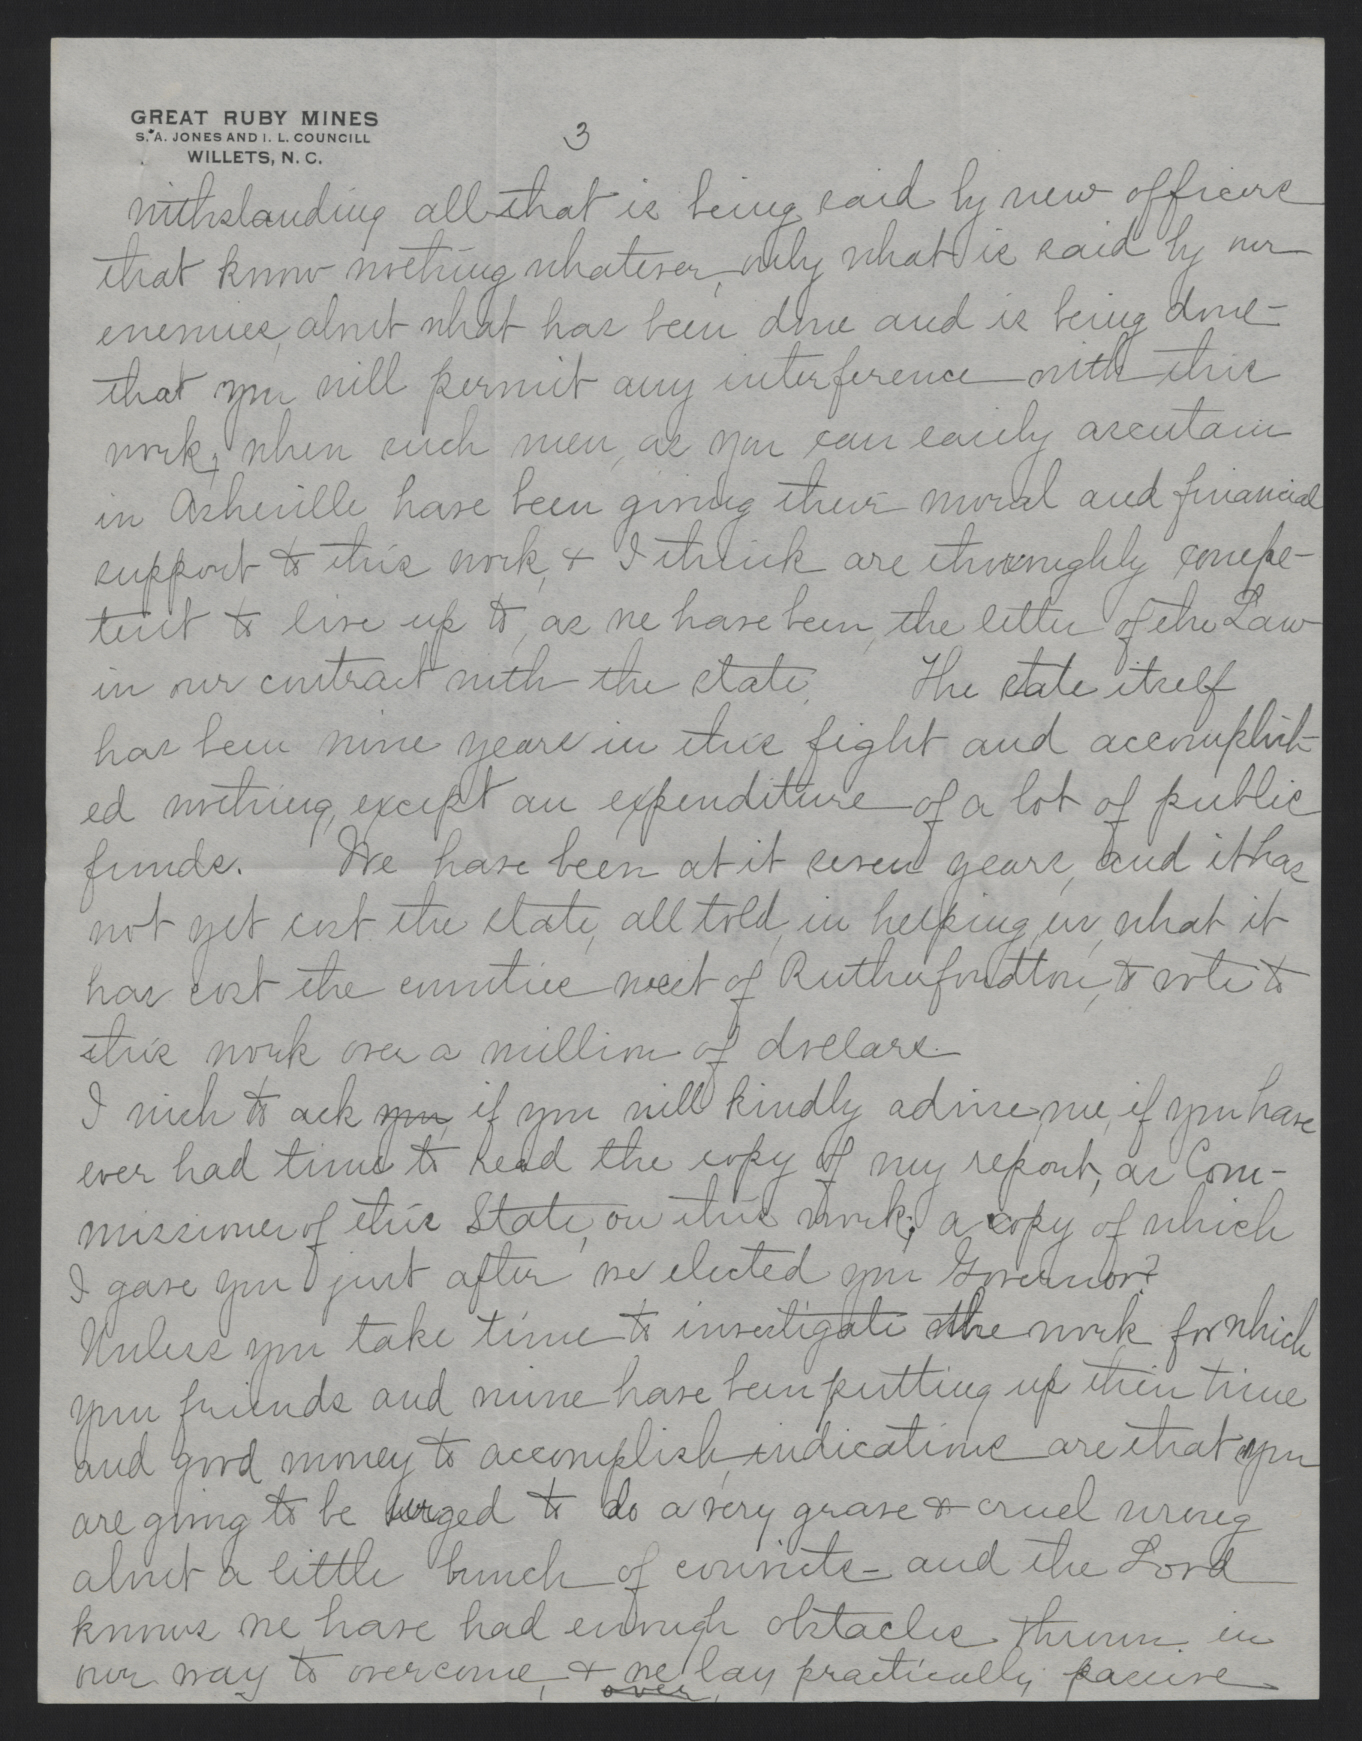 GREAT RUBY MINES
S. A. JONES AND I. L. COUNCILL
WILLETS, N. C.
3
withstanding all that is being said by new officers
that know nothing whatever, only what is said by our
enemies, about what has been done and is being done-
that you will permit any interference with this
work, when such men, as you can easily ascertain
in Asheville have been giving their moral and financial
support to this work, & I think are thoroughly compe-
tent to live up to, as we have been, the letter of the Law
in our contract with the state. The state itself
has been nine years in this fight and accomplish-
ed nothing, except an expenditure of a lot of public
funds. We have been at it seven years, and it has
not yet cost the state, all told, in helping us, what it
has cost the counties west of Rutherfordton, to vote to
this work over a million of dollars.
I wish to ask you if you will kindly advise me, if you have
ever had time to read the copy of my report, as Com-
missioner of this State, on this work; a copy of which
I gave you just after we elected you Governor?
Unless you take time to investigate the work for which
your friends and mine have been putting up their time
and good money to accomplish, indications are that you
are going to be urged to do a very grave & cruel wrong
about a little bunch of convicts - and the Lord
knows we have had enough obstacles thrown in
our way to overcome, & we lay practically passive
over